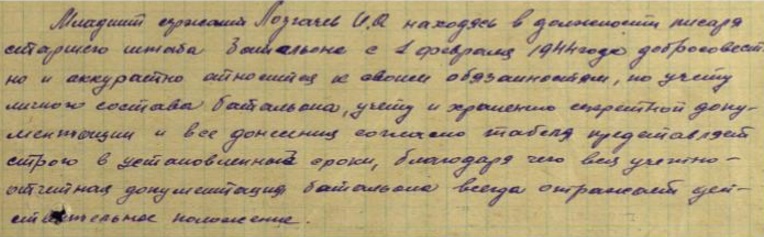 Младший сержант Лозгачев И.А находясь в должности писаря
старшего штаба батальона с 1 февраля 1944 года добросовест
но и аккуратно относится к своим обязанностям, по учету
личного состава батальона, учету и хранению секретной доку-
ментации и все донесения согласно табеля представляет
строго в установленный сроки, благодаря чего вся учетно-
отчетная документация батальона всегда отражает дей-
ствительное положение.